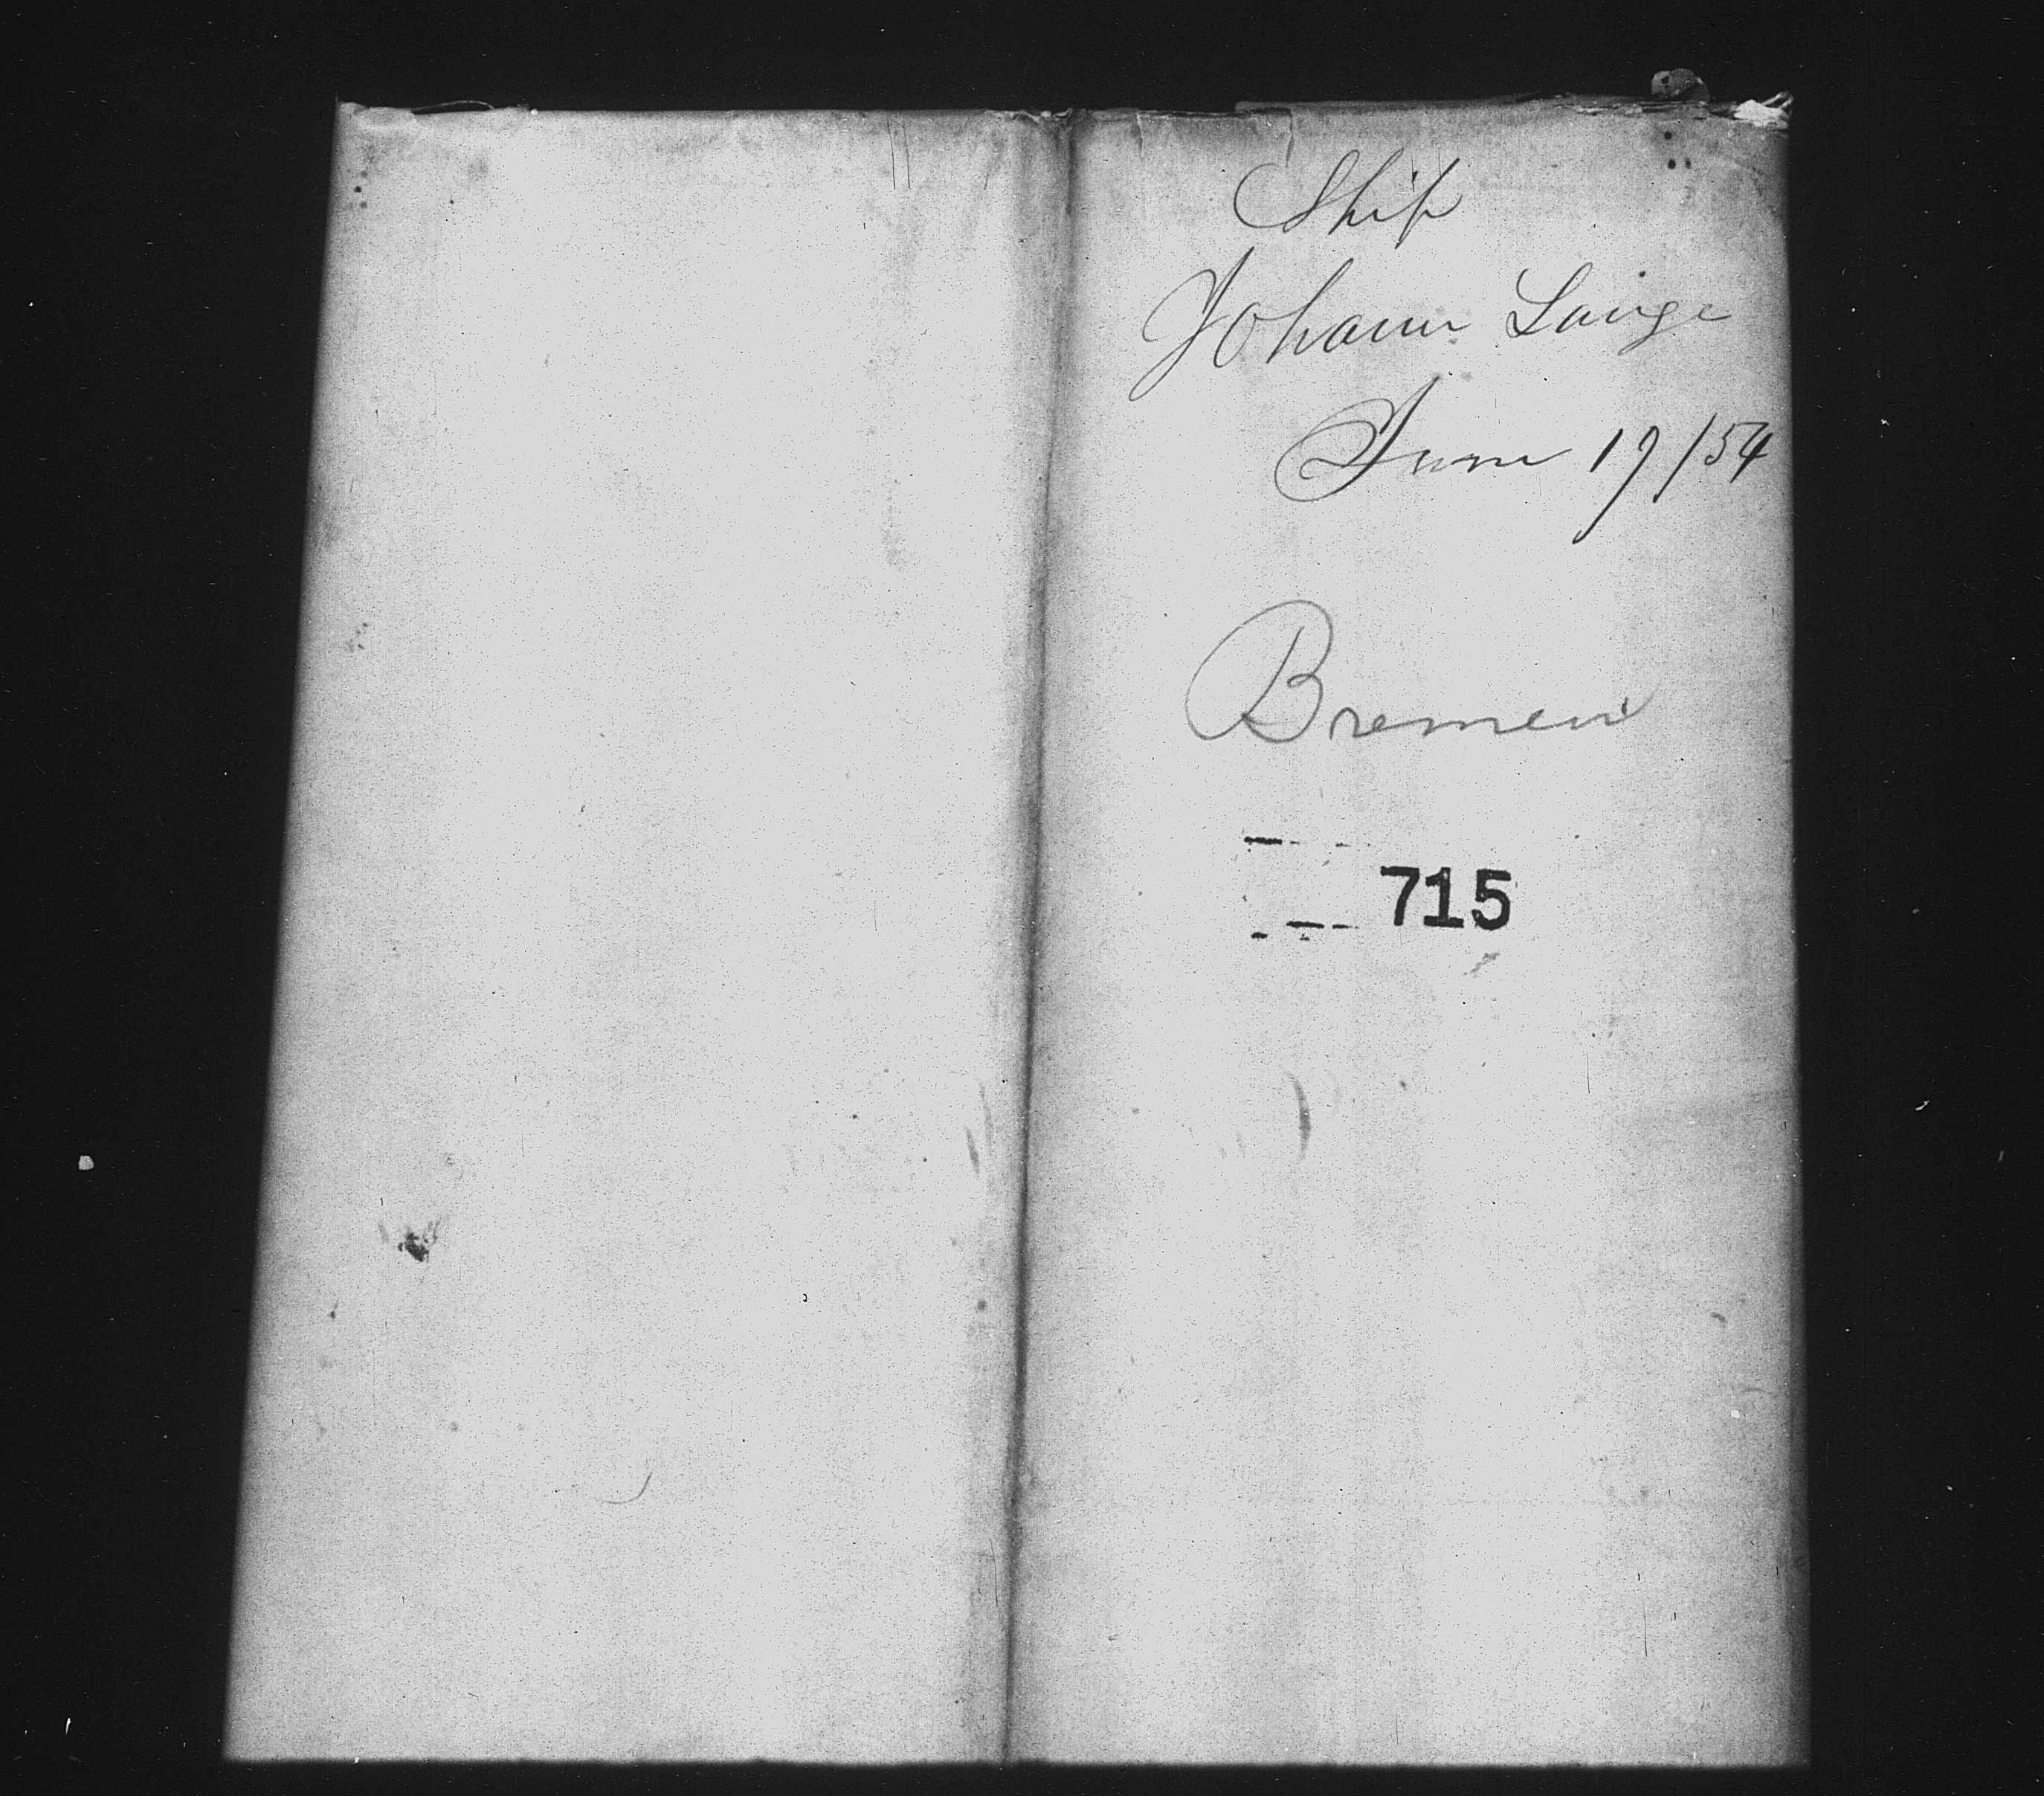 Ship
Johann Lange
June 19/54
Bremen
715